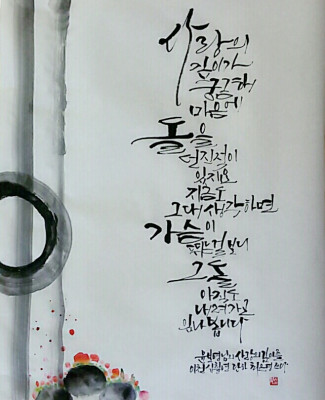 사랑의
깊이가
궁금해
마음에
돌을
던진적이
있지요
지금도
그대 생각하면
가슴이
뛰는걸 보니
그 돌
아직도
내려가고
있나 봅니다
윤보영님의 사랑의 깊이를